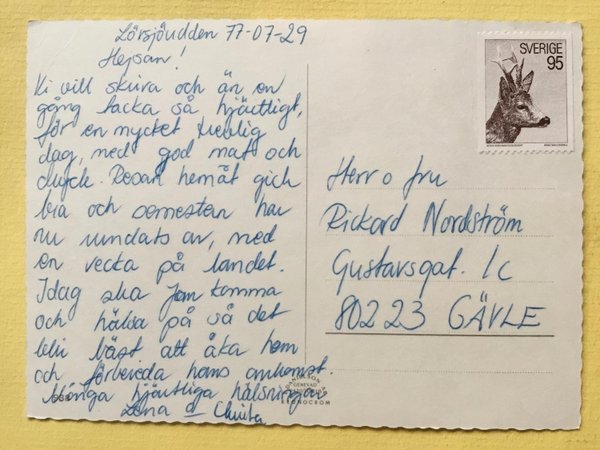 Lörsjöudden 77-07-29
Hejsan!
Vi vill skriva och än en
gång tacka så hjärtligt,
för en mycket trevlig
dag, med god mat och
dryck. Resan hemåt gick
bra och semestern har
nu rundats av, med
en vecka på landet.
Idag ska Jan komma
och hälsa på så det
blir bäst att åka hem
och förbereda hans ankomst.
Många hjärtliga hälsningar
Lena o
SVERIGE
95
Herr o fru
Rickard Nordström
Gustavsgat. 1c
80223 GÄVLE